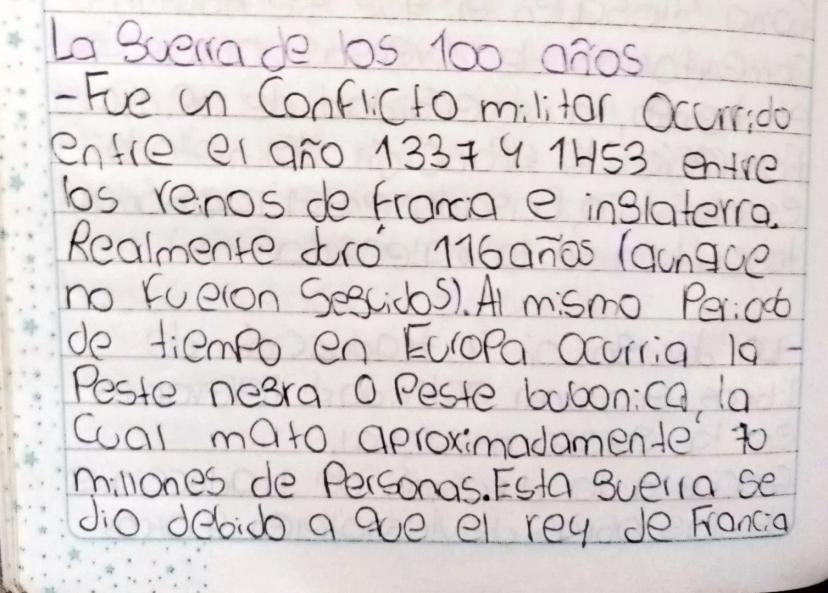 La Guerra de los 100 años
-Fue un Conflicto militar Ocurrido
entre el año 1337 y 1453 entre
los renos de franca e inglaterra.
Realmente duró 116 años (aunque
no fueron Seguidos). Al mismo Periodo
de tiempo en Europa ocurria la
Peste negra o Peste bubonica, la
Cual mato aproximadamente 70
millones de Personas. Esta guerra se
dio debido a que el rey de Francia